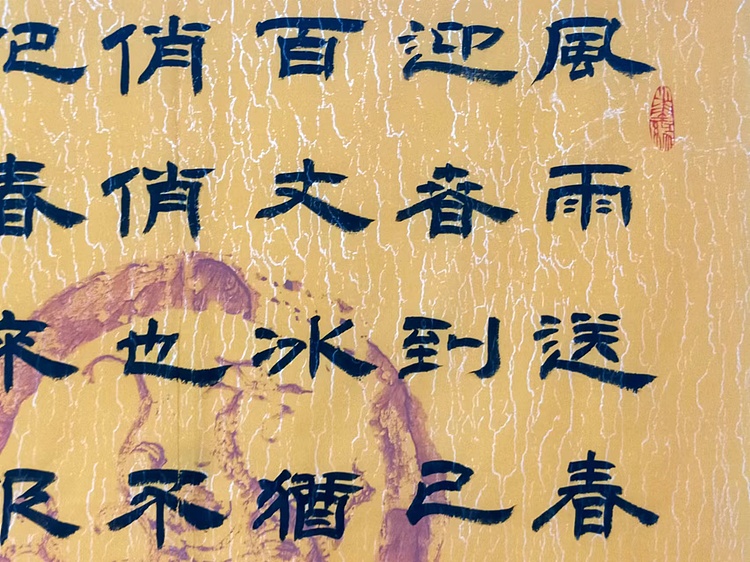 風雨送春
迎春到已
百丈冰猶
俏俏也不
把春來報